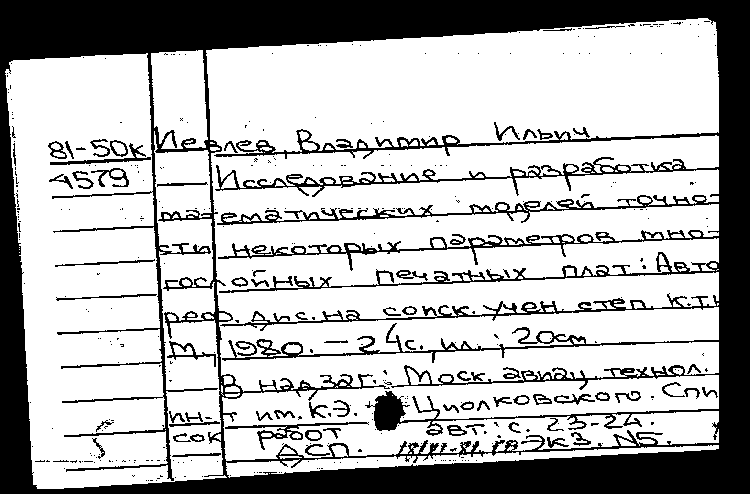 81-50к Иевлев, Владимир Ильич.
4579 Исследование и разработка
математических моделей точно-
сти некоторых параметров мно-
гослойных печатных плат: Авто
реф. дис. на соиск. учен. степ. к.т.н
М., 1980. – 24с., ил.; 20см.
В надзаг.: Моск. авиац. технол.
ин-т им. К.Э. Циолковского. Спи
сок работ авт.: с. 23-24.
ДСП. Экз. №5.